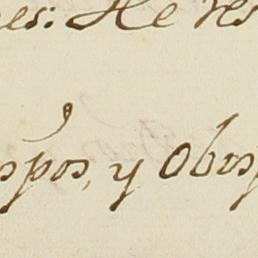 es: He res
spos, y Obisp